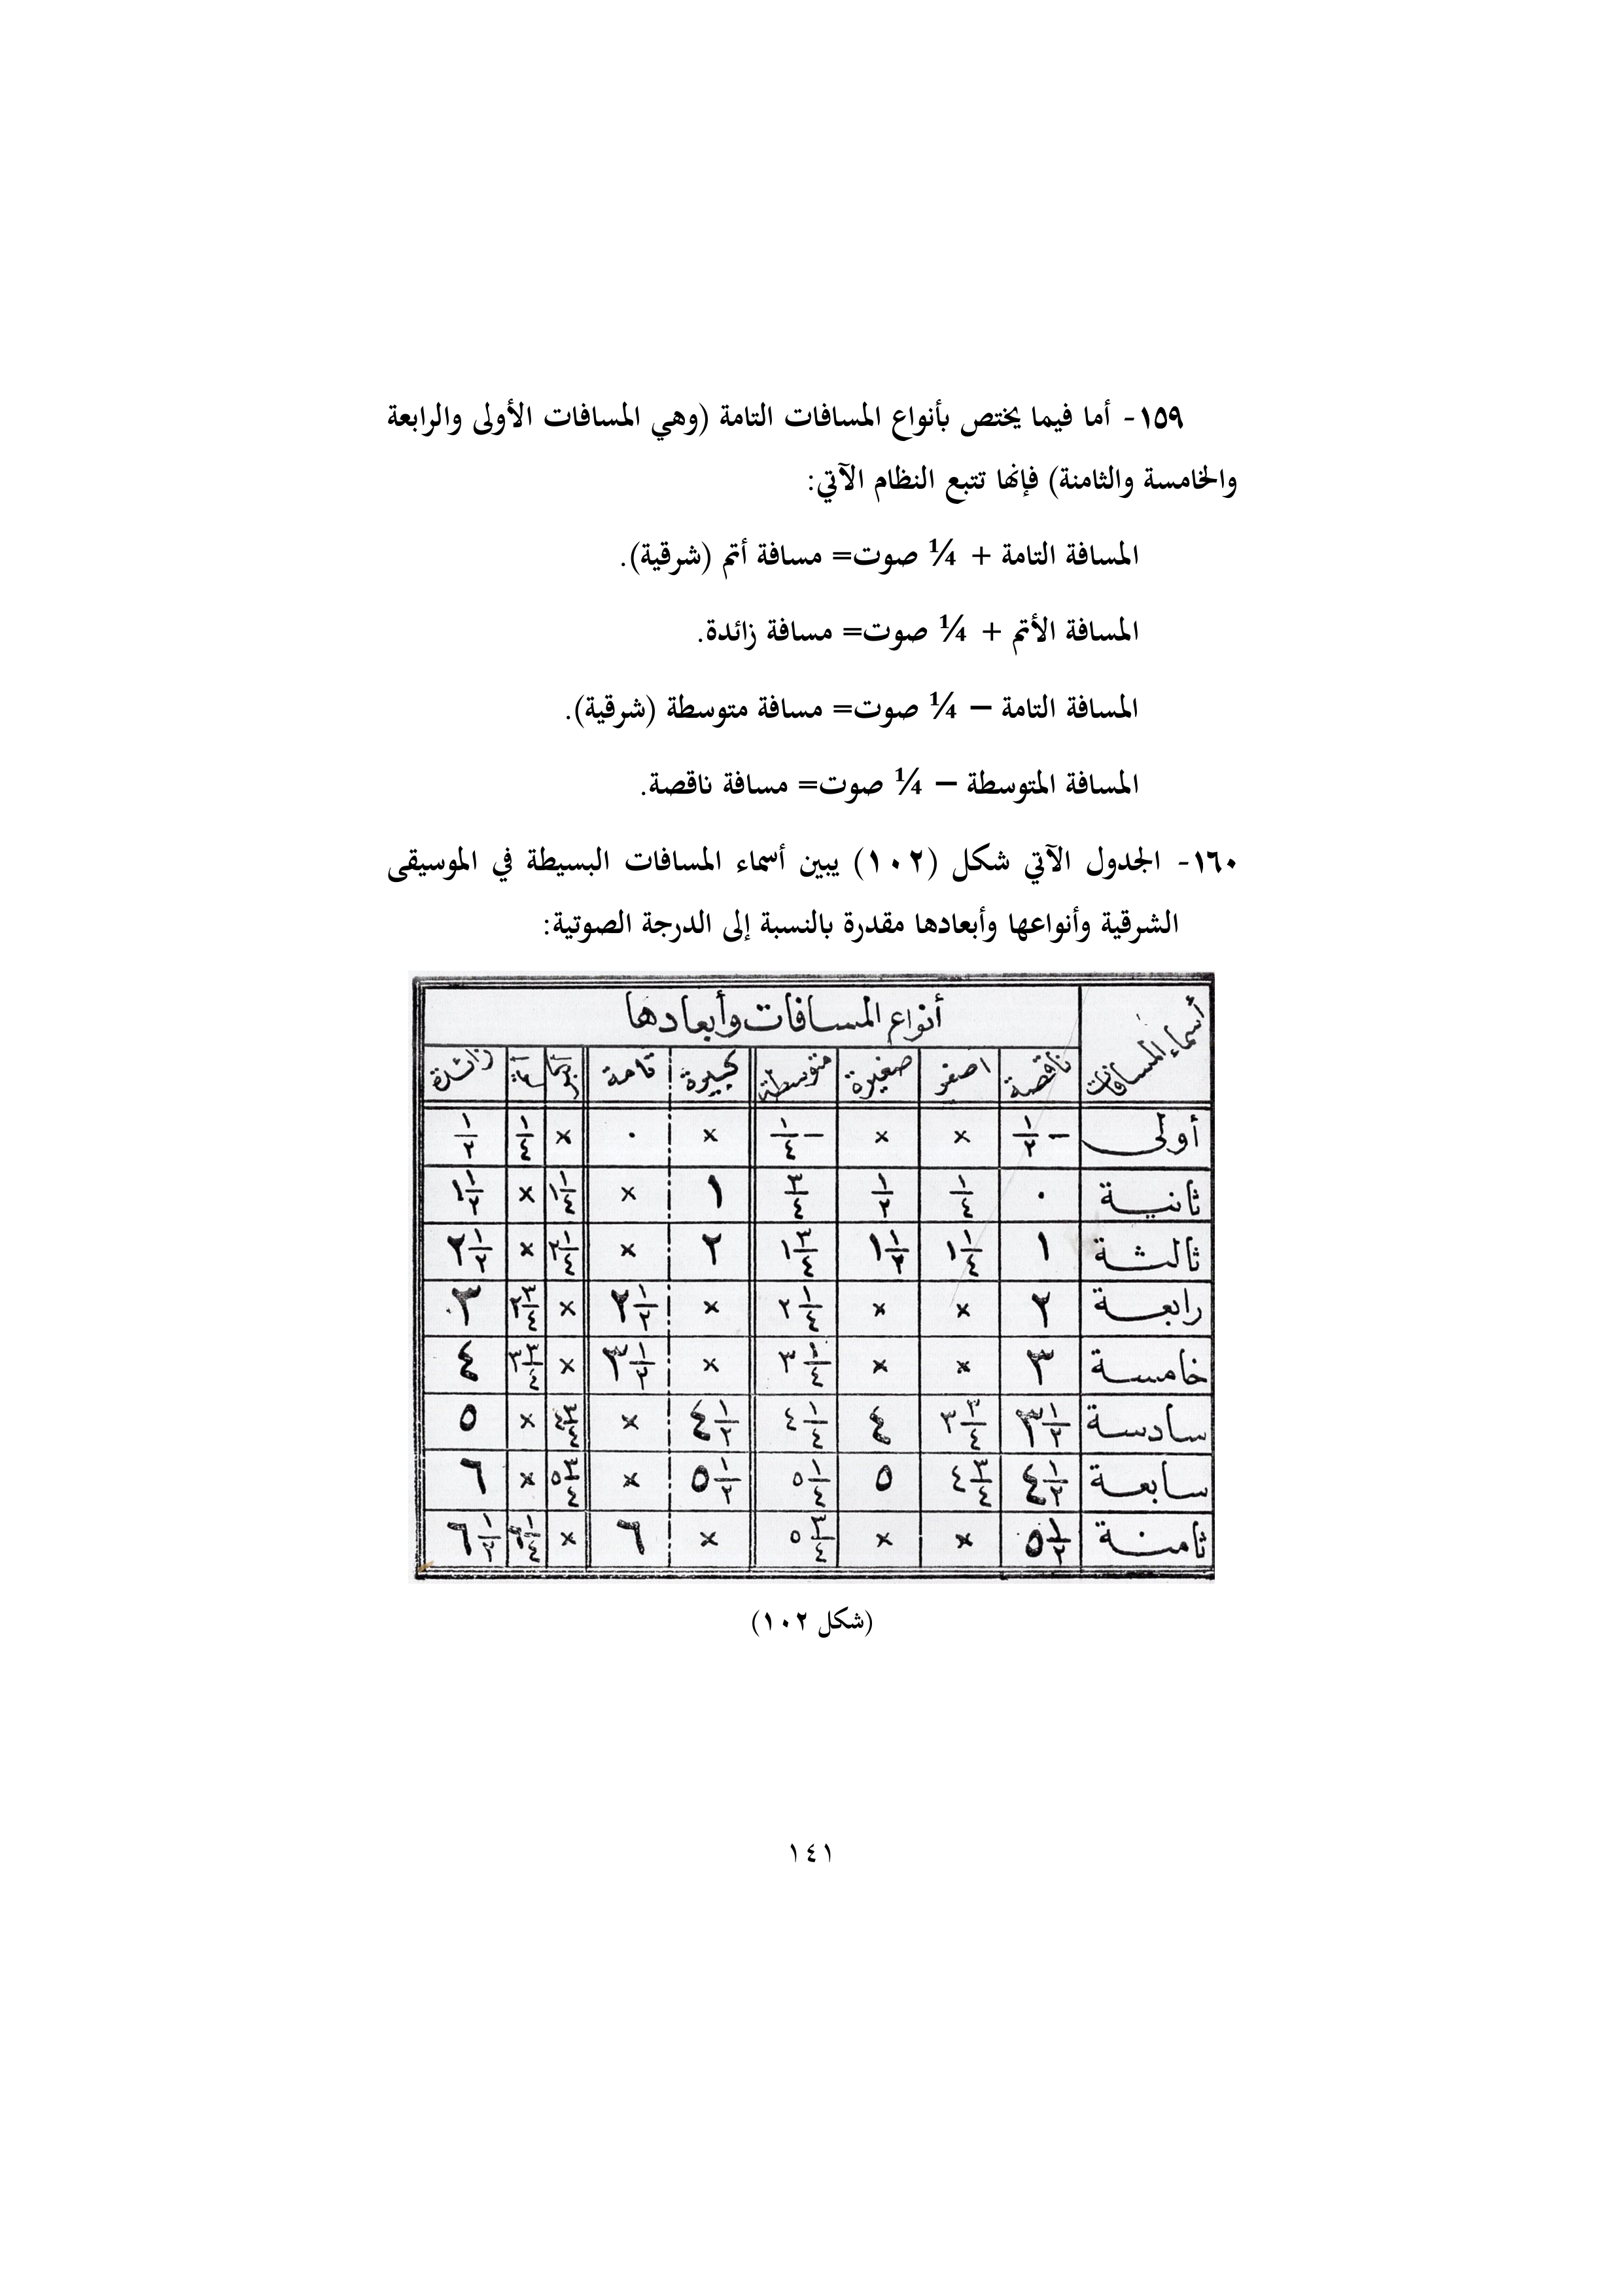 ١٥٩- أما فيما يختص بأنواع المسافات التامة (وهي المسافات الأولى والرابعة
والخامسة والثامنة) فإنها تتبع النظام الآتي:
المسافة التامة + ¼ صوت= مسافة أتم (شرقية).
المسافة الأتم + ¼ صوت= مسافة زائدة.
المسافة التامة – ¼ صوت= مسافة متوسطة (شرقية).
المسافة المتوسطة – ¼ صوت= مسافة ناقصة.
١٦٠- الجدول الآتي شكل (١٠٢) يبين أسماء المسافات البسيطة في الموسيقى
الشرقية وأنواعها وأبعادها مقدرة بالنسبة إلى الدرجة الصوتية:
أسماء المسافات أنواع المسافات وأبعادها
ناقصة اصغر صغيرة متوسطة كبيرة تامة أكبر أتم زائدة
أولى -١/٢ × × -١/٤ × ٠ × ١/٤ ١/٢
ثانية ٠ ١/٤ ١/٢ ٣/٤ ١ × ١ ١/٤ × ١ ١/٢
ثالثة ١ ١ ١/٤ ١ ١/٢ ١ ٣/٤ ٢ × ٢ ١/٤ × ٢ ١/٢
رابعة ٢ × × ٢ ١/٤ × ٢ ١/٢ × ٢ ٣/٤ ٣
خامسة ٣ × × ٣ ١/٤ × ٣ ١/٢ × ٣ ٣/٤ ٤
سادسة ٣ ١/٢ ٣ ٣/٤ ٤ ٤ ١/٤ ٤ ١/٢ × ٤ ٣/٤ × ٥
سابعة ٤ ١/٢ ٤ ٣/٤ ٥ ٥ ١/٤ ٥ ١/٢ × ٥ ٣/٤ × ٦
ثامنة ٥ ١/٢ × × ٥ ٣/٤ × ٦ × ٦ ١/٤ ٦ ١/٢
(شكل ١٠٢)
١٤١